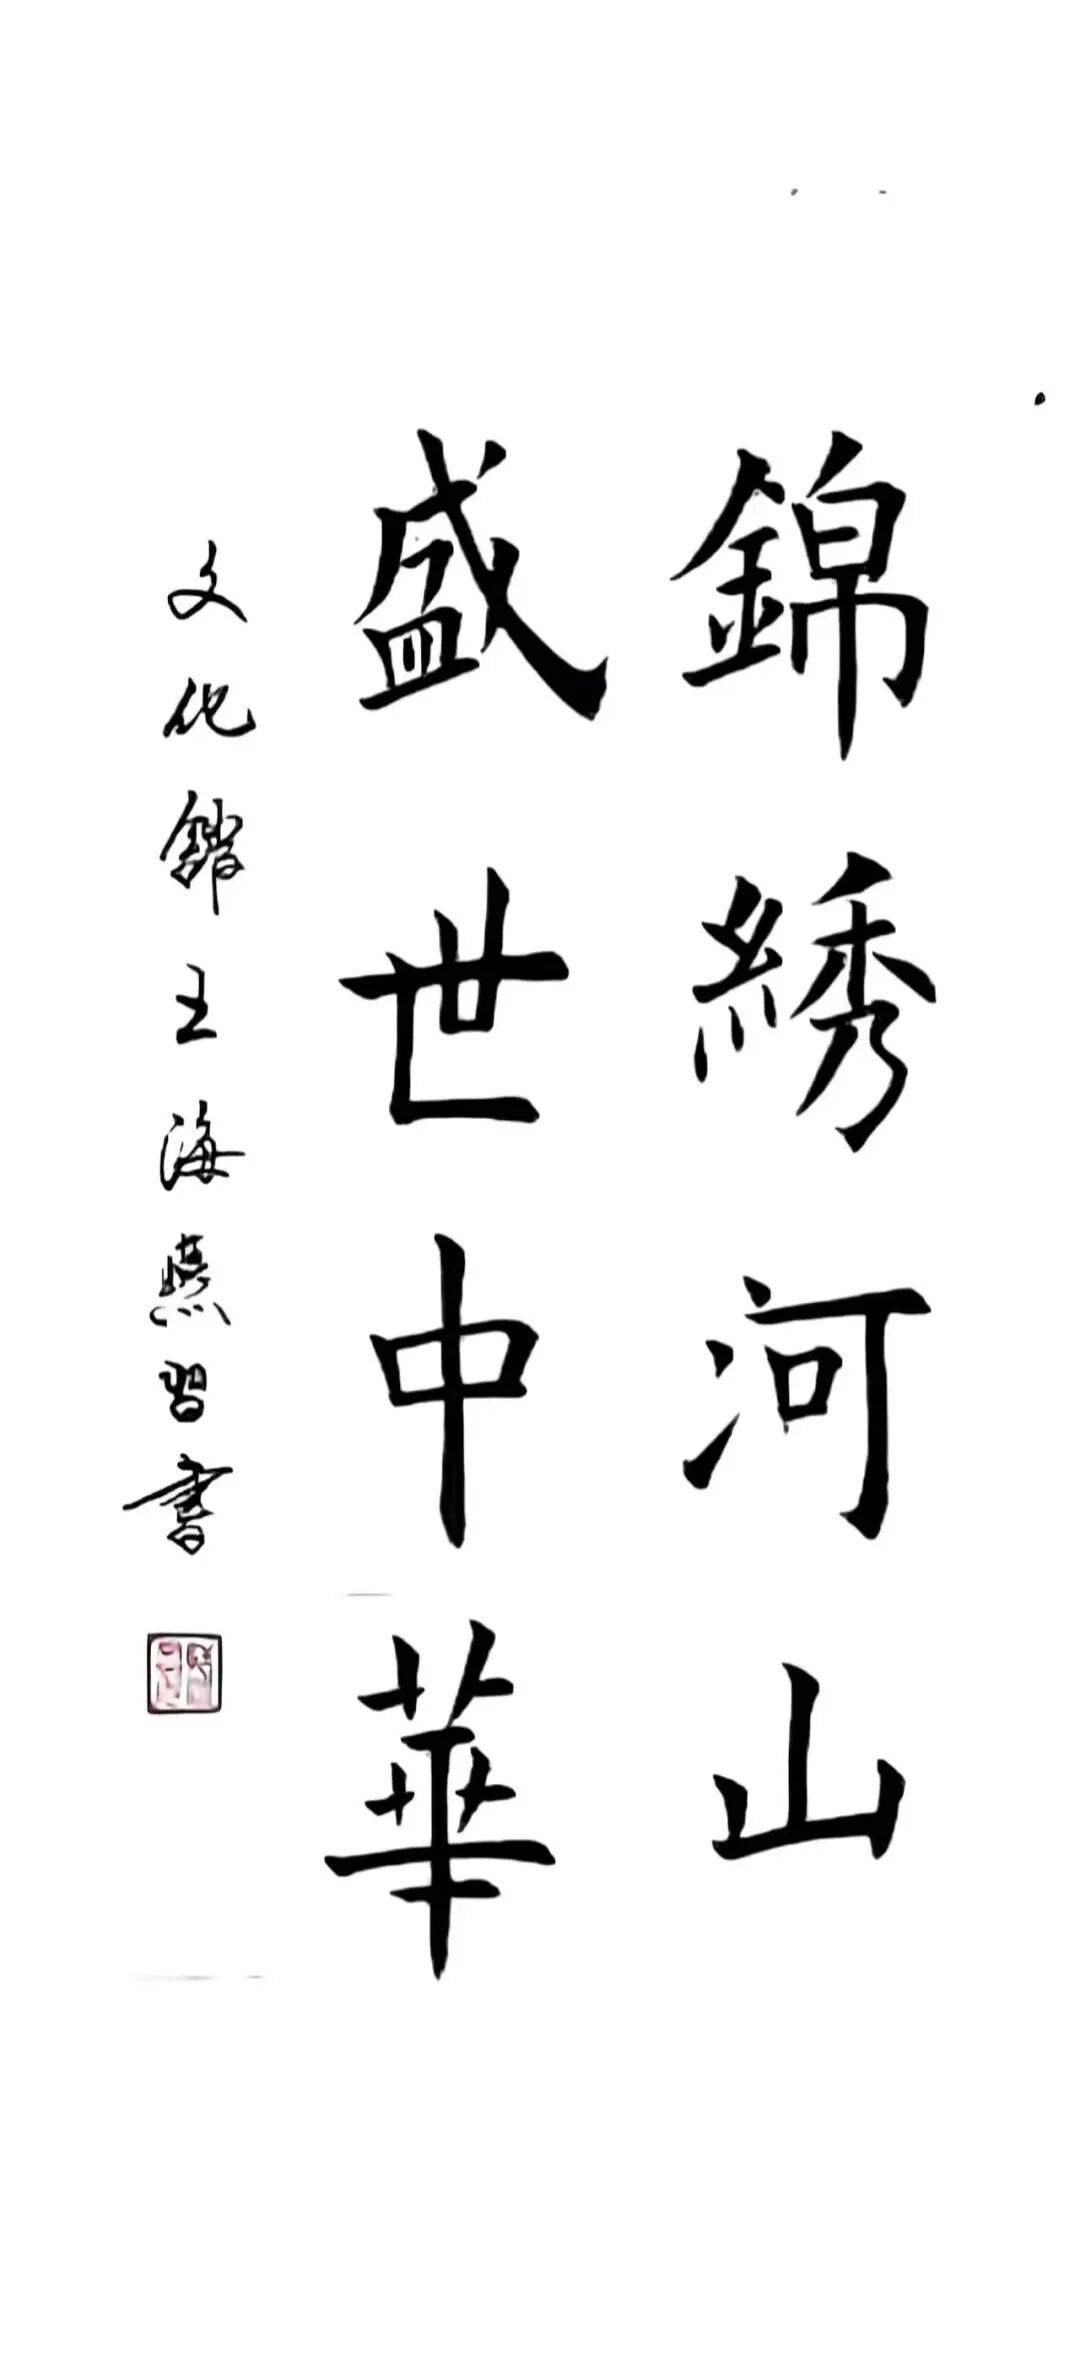 錦綉河山
盛世中華
文化館王海燕習書